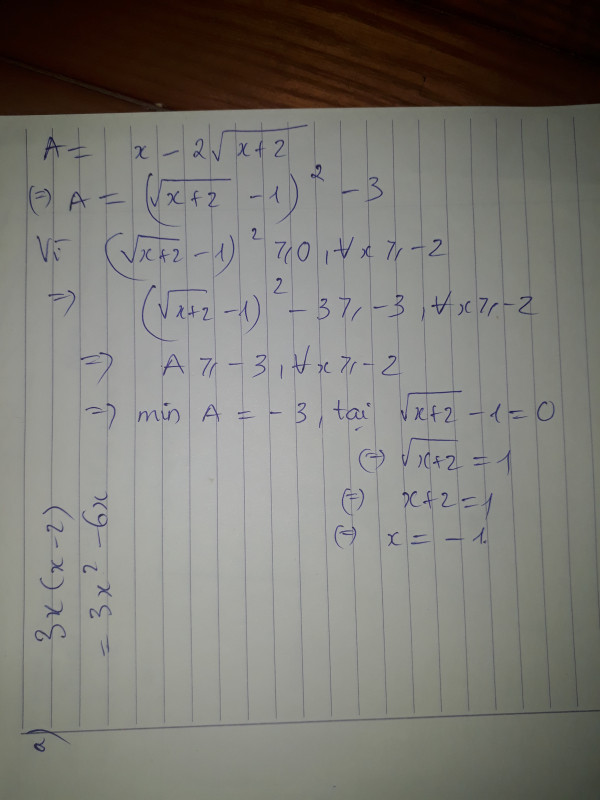 A = x - 2√(x+2)
(=) A = (√(x+2) - 1)² - 3
Vì (√(x+2) - 1)² ≥ 0, ∀x ≥ -2
=> (√(x+2) - 1)² - 3 ≥ -3, ∀x ≥ -2
=> A ≥ -3, ∀x ≥ -2
=> min A = -3, tại √(x+2) - 1 = 0
(=) √(x+2) = 1
(=) x+2 = 1
(=) x = -1.
a) 3x(x-2)
= 3x² - 6x